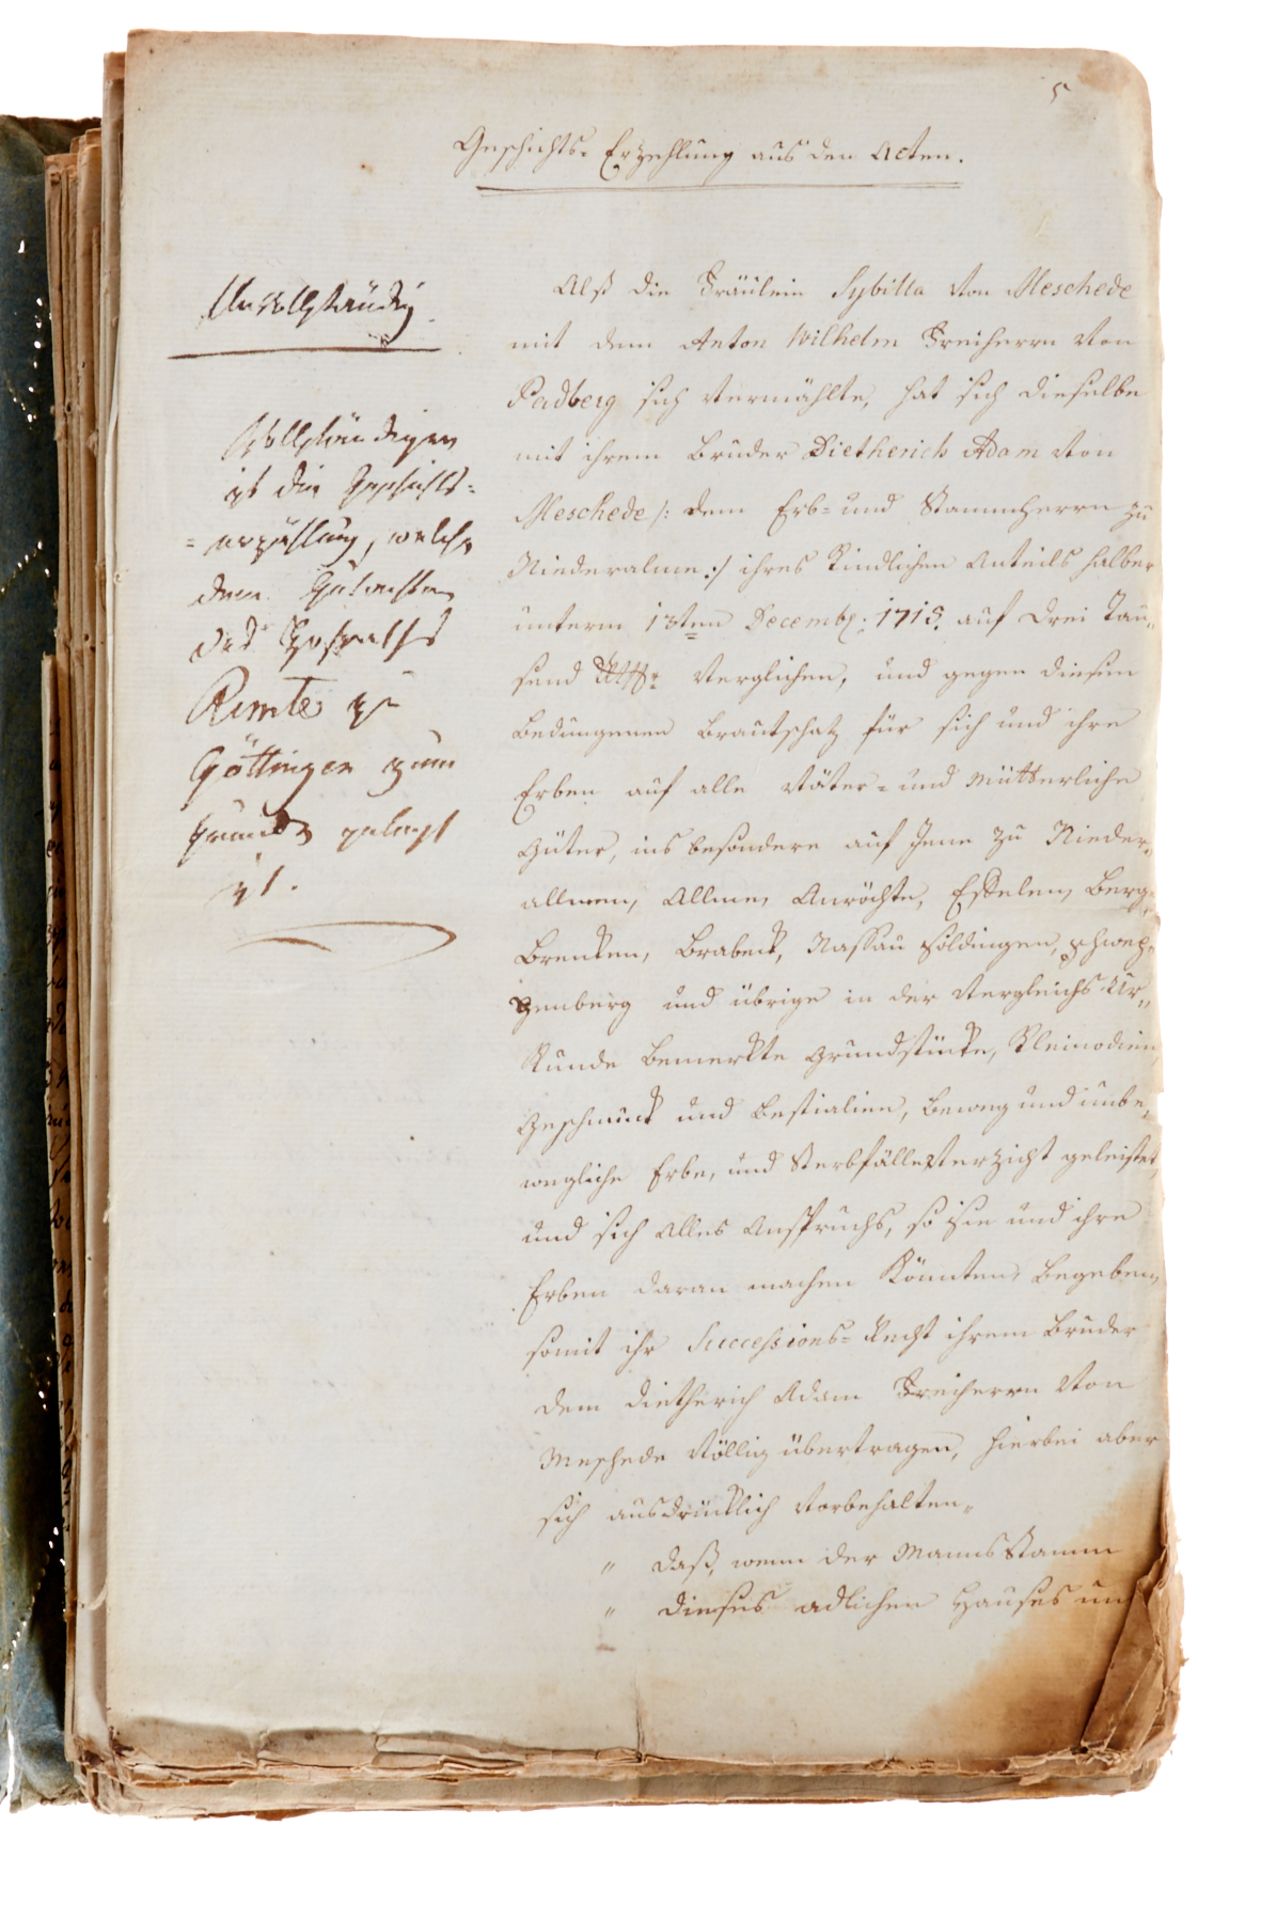 5
Geschichts- Erzehlung aus den Acten.
Unvollständig.
Vollständiger
ist die Geschichts-
-erzählung, welche
dem Gutachten
des Hofraths
Runde zu
Göttingen zum
Grunde gelegt
ist.
Alß die Fräulein Sybilla von Meschede
mit dem Anton Wilhelm Freiherrn von
Padberg sich vermählte, hat sich dieselbe
mit ihrem Bruder Dietherich Adam von
Meschede /: dem Erb- und Stammherrn zu
Niederalme :/ ihres Kindlichen Anteils halber
unterm 13ten Decembr. 1715. auf drei Tau„
send Rthlr verglichen, und gegen diesen
bedungenen Brautschatz für sich und ihre
Erben auf alle Väter- und Mütterliche
Güter, ins besondere auf Jene zu Nieder„
allmen, Allmen, Anröchte, Esselen, Berg„
Brenken, Brabeck, Nassau Söldingen, Schwep„
penberg und übrige in der Vergleichs Ur„
Kunde bemerkte Grundstücke, Kleinodien,
Geschmuck und Bestialien, beweg und unbe„
wegliche Erbe, und Sterbfälle Verzicht geleistet,
und sich alles Anspruchs, so sie und ihre
Erben daran machen Könnten, begeben,
somit ihr Successions- Recht ihrem Bruder
dem Dietherich Adam Freiherrn von
Meschede Völlig übertragen, hierbei aber
sich ausdrücklich vorbehalten„
„ daß, wenn der MannsStamm
„ dieses adlichen Hauses un